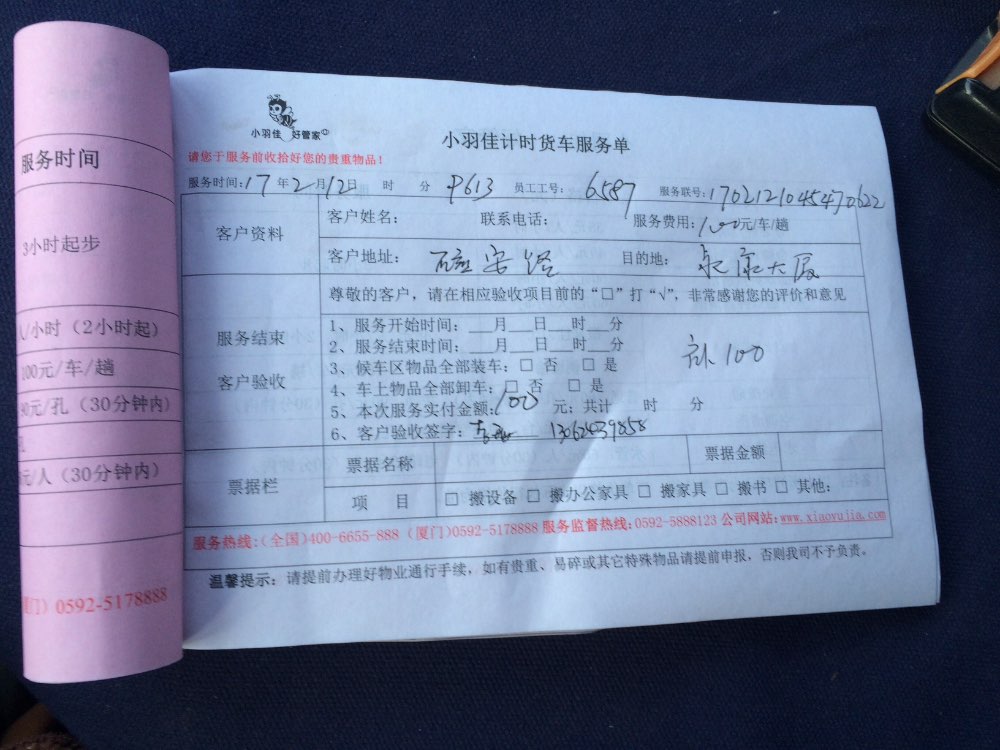 服务时间
3小时起步
人/小时（2小时起）
100元/车/趟
元/孔（30分钟内）
元/人（30分钟内）
门）0592-5178888
小羽佳 好管家
小羽佳计时货车服务单
请您于服务前收拾好您的贵重物品！
服务时间:17年2月12日 时 分 P613 员工工号: 6587 服务联号:170212104547 0622
客户资料
客户姓名: 联系电话: 服务费用:100元/车/趟
客户地址: 安 目的地: 泉 大厦
尊敬的客户，请在相应验收项目前的“□”打“√”，非常感谢您的评价和意见
服务结束
客户验收
1、服务开始时间：___月___日___时___分
2、服务结束时间：___月___日___时___分
3、候车区物品全部装车：□ 否 □ 是
补100
4、车上物品全部卸车：□ 否 □ 是
5、本次服务实付金额:100 元; 共计 时 分
6、客户验收签字: 13062439858
票据栏
票据名称 票据金额
项 目 □ 搬设备 □ 搬办公家具 □ 搬家具 □ 搬书 □ 其他:
服务热线:(全国)400-6655-888 (厦门)0592-5178888 服务监督热线:0592-5888123 公司网站:www.xiaoyujia.com
温馨提示：请提前办理好物业通行手续，如有贵重、易碎或其它特殊物品请提前申报，否则我司不予负责。